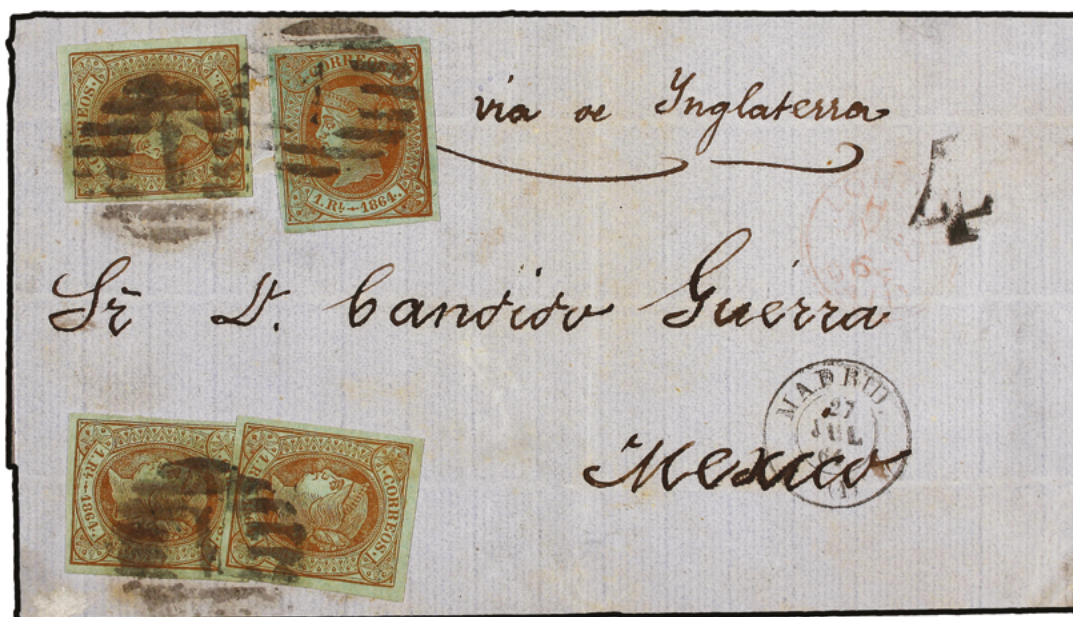 CORREOS. 1864.
CORREOS 1. Rl. 1864.
via de Inglaterra
4
Sr D. Candido Guérra
MADRID. 27 JUL (1)
Mexico
1. Rl. 1864.
1. R CORREOS